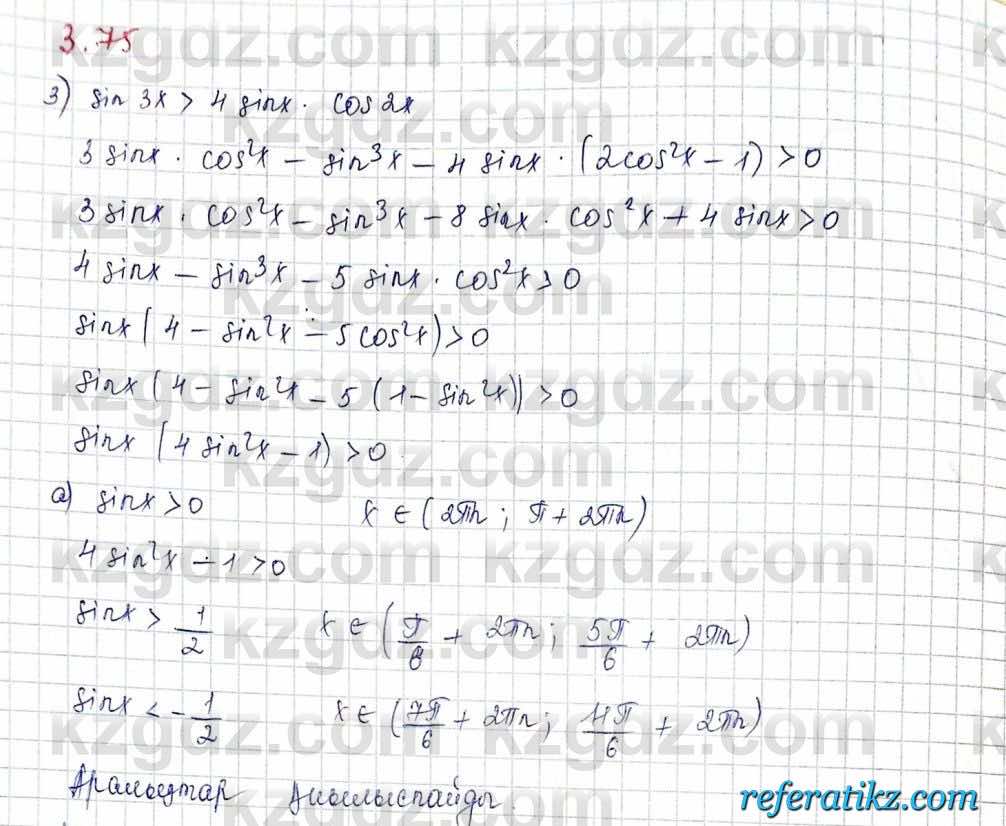 3.75
3) sin 3x > 4 sinx · cos 2x
3 sinx · cos²x – sin³x – 4 sinx · (2cos²x – 1) > 0
3 sinx · cos²x – sin³x – 8 sinx · cos²x + 4 sinx > 0
4 sinx – sin³x – 5 sinx · cos²x > 0
sinx (4 – sin²x – 5cos²x) > 0
sinx (4 – sin²x – 5 (1 – sin²x)) > 0
sinx (4 sin²x – 1) > 0
a) sinx > 0 x ∈ (2πn ; π + 2πn)
4 sin²x – 1 > 0
sinx > 1/2 x ∈ (π/6 + 2πn ; 5π/6 + 2πn)
sinx < – 1/2 x ∈ (7π/6 + 2πn ; 11π/6 + 2πn)
Аралықтар
referatikz.com
kzgdz.com